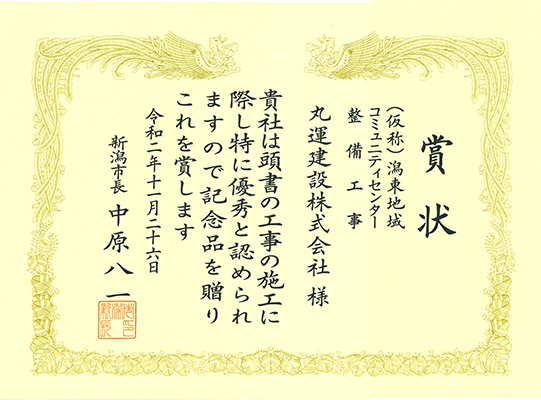 賞状
(仮称)潟東地域
コミュニティセンター
整備工事
丸運建設株式会社 様
貴社は頭書の工事の施工に
際し特に優秀と認められ
ますので記念品を贈り
これを賞します
令和二年十一月二十六日
新潟市長 中原八一